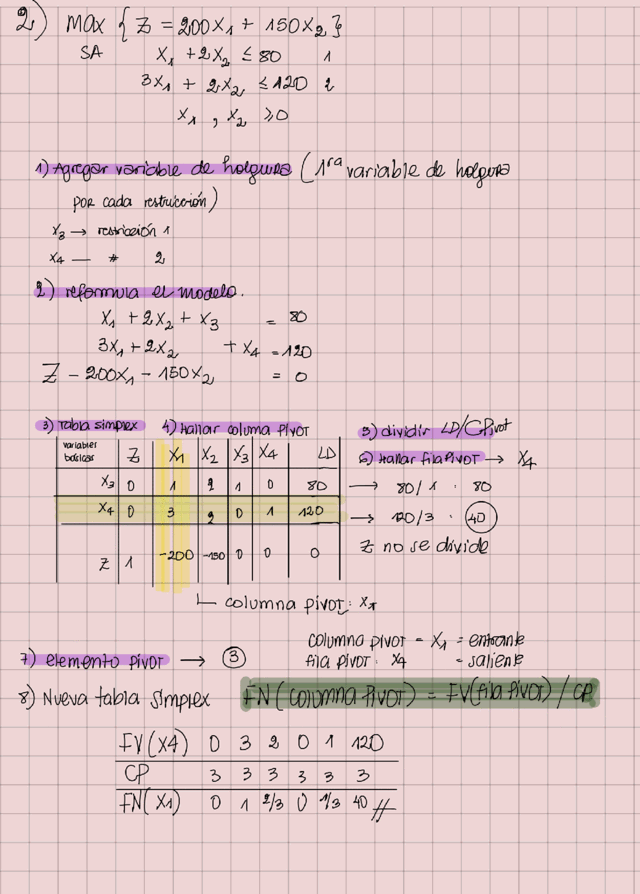 2) MAX { Z = 200X1 + 150X2 }
SA X1 + 2X2 ≤ 80 1
3X1 + 2X2 ≤ 120 2
X1 , X2 ≥ 0
1) Agregar variable de holgura (1ra variable de holgura
por cada restricción)
X3 → restricción 1
X4 — # 2
2) reformula el modelo.
X1 + 2X2 + X3 = 80
3X1 + 2X2 + X4 = 120
Z - 200X1 - 150X2 = 0
3) Tabla simplex 4) Hallar columa pivot 5) dividir LD/CPivot
variables basicas Z X1 X2 X3 X4 LD 6) Hallar fila Pivot → X4
X3 0 1 2 1 0 80 → 80/1 = 80
X4 0 3 2 0 1 120 → 120/3 = 40
Z 1 -200 -150 0 0 0 Z no se divide
columna pivot: X1
columna pivot = X1 = entrante
7) elemento pivot → 3 fila pivot: X4 = saliente
8) Nueva tabla simplex FN(columna Pivot) = FV(fila Pivot) / CP
FV(X4) 0 3 2 0 1 120
CP 3 3 3 3 3 3
FN(X1) 0 1 2/3 0 1/3 40 //